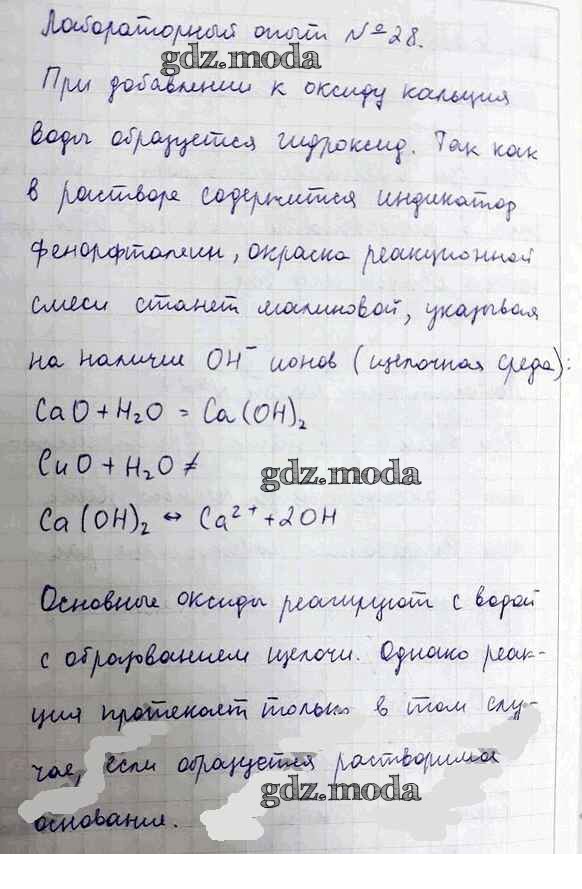 Лабораторный опыт №28.
gdz.moda
При добавлении к оксиду кальция
воды образуется гидроксид. Так как
в растворе содержится индикатор
фенолфталеин, окраска реакционной
смеси станет малиновой, указывая
на наличие OH⁻ ионов (щелочная среда):
CaO + H₂O = Ca(OH)₂
CuO + H₂O ≠
gdz.moda
Ca(OH)₂ ↔ Ca²⁺ + 2OH
Основные оксиды реагируют с водой
с образованием щелочи. Однако реак-
ция протекает только в том слу-
чае, если образуется растворимое
gdz.moda
основание.